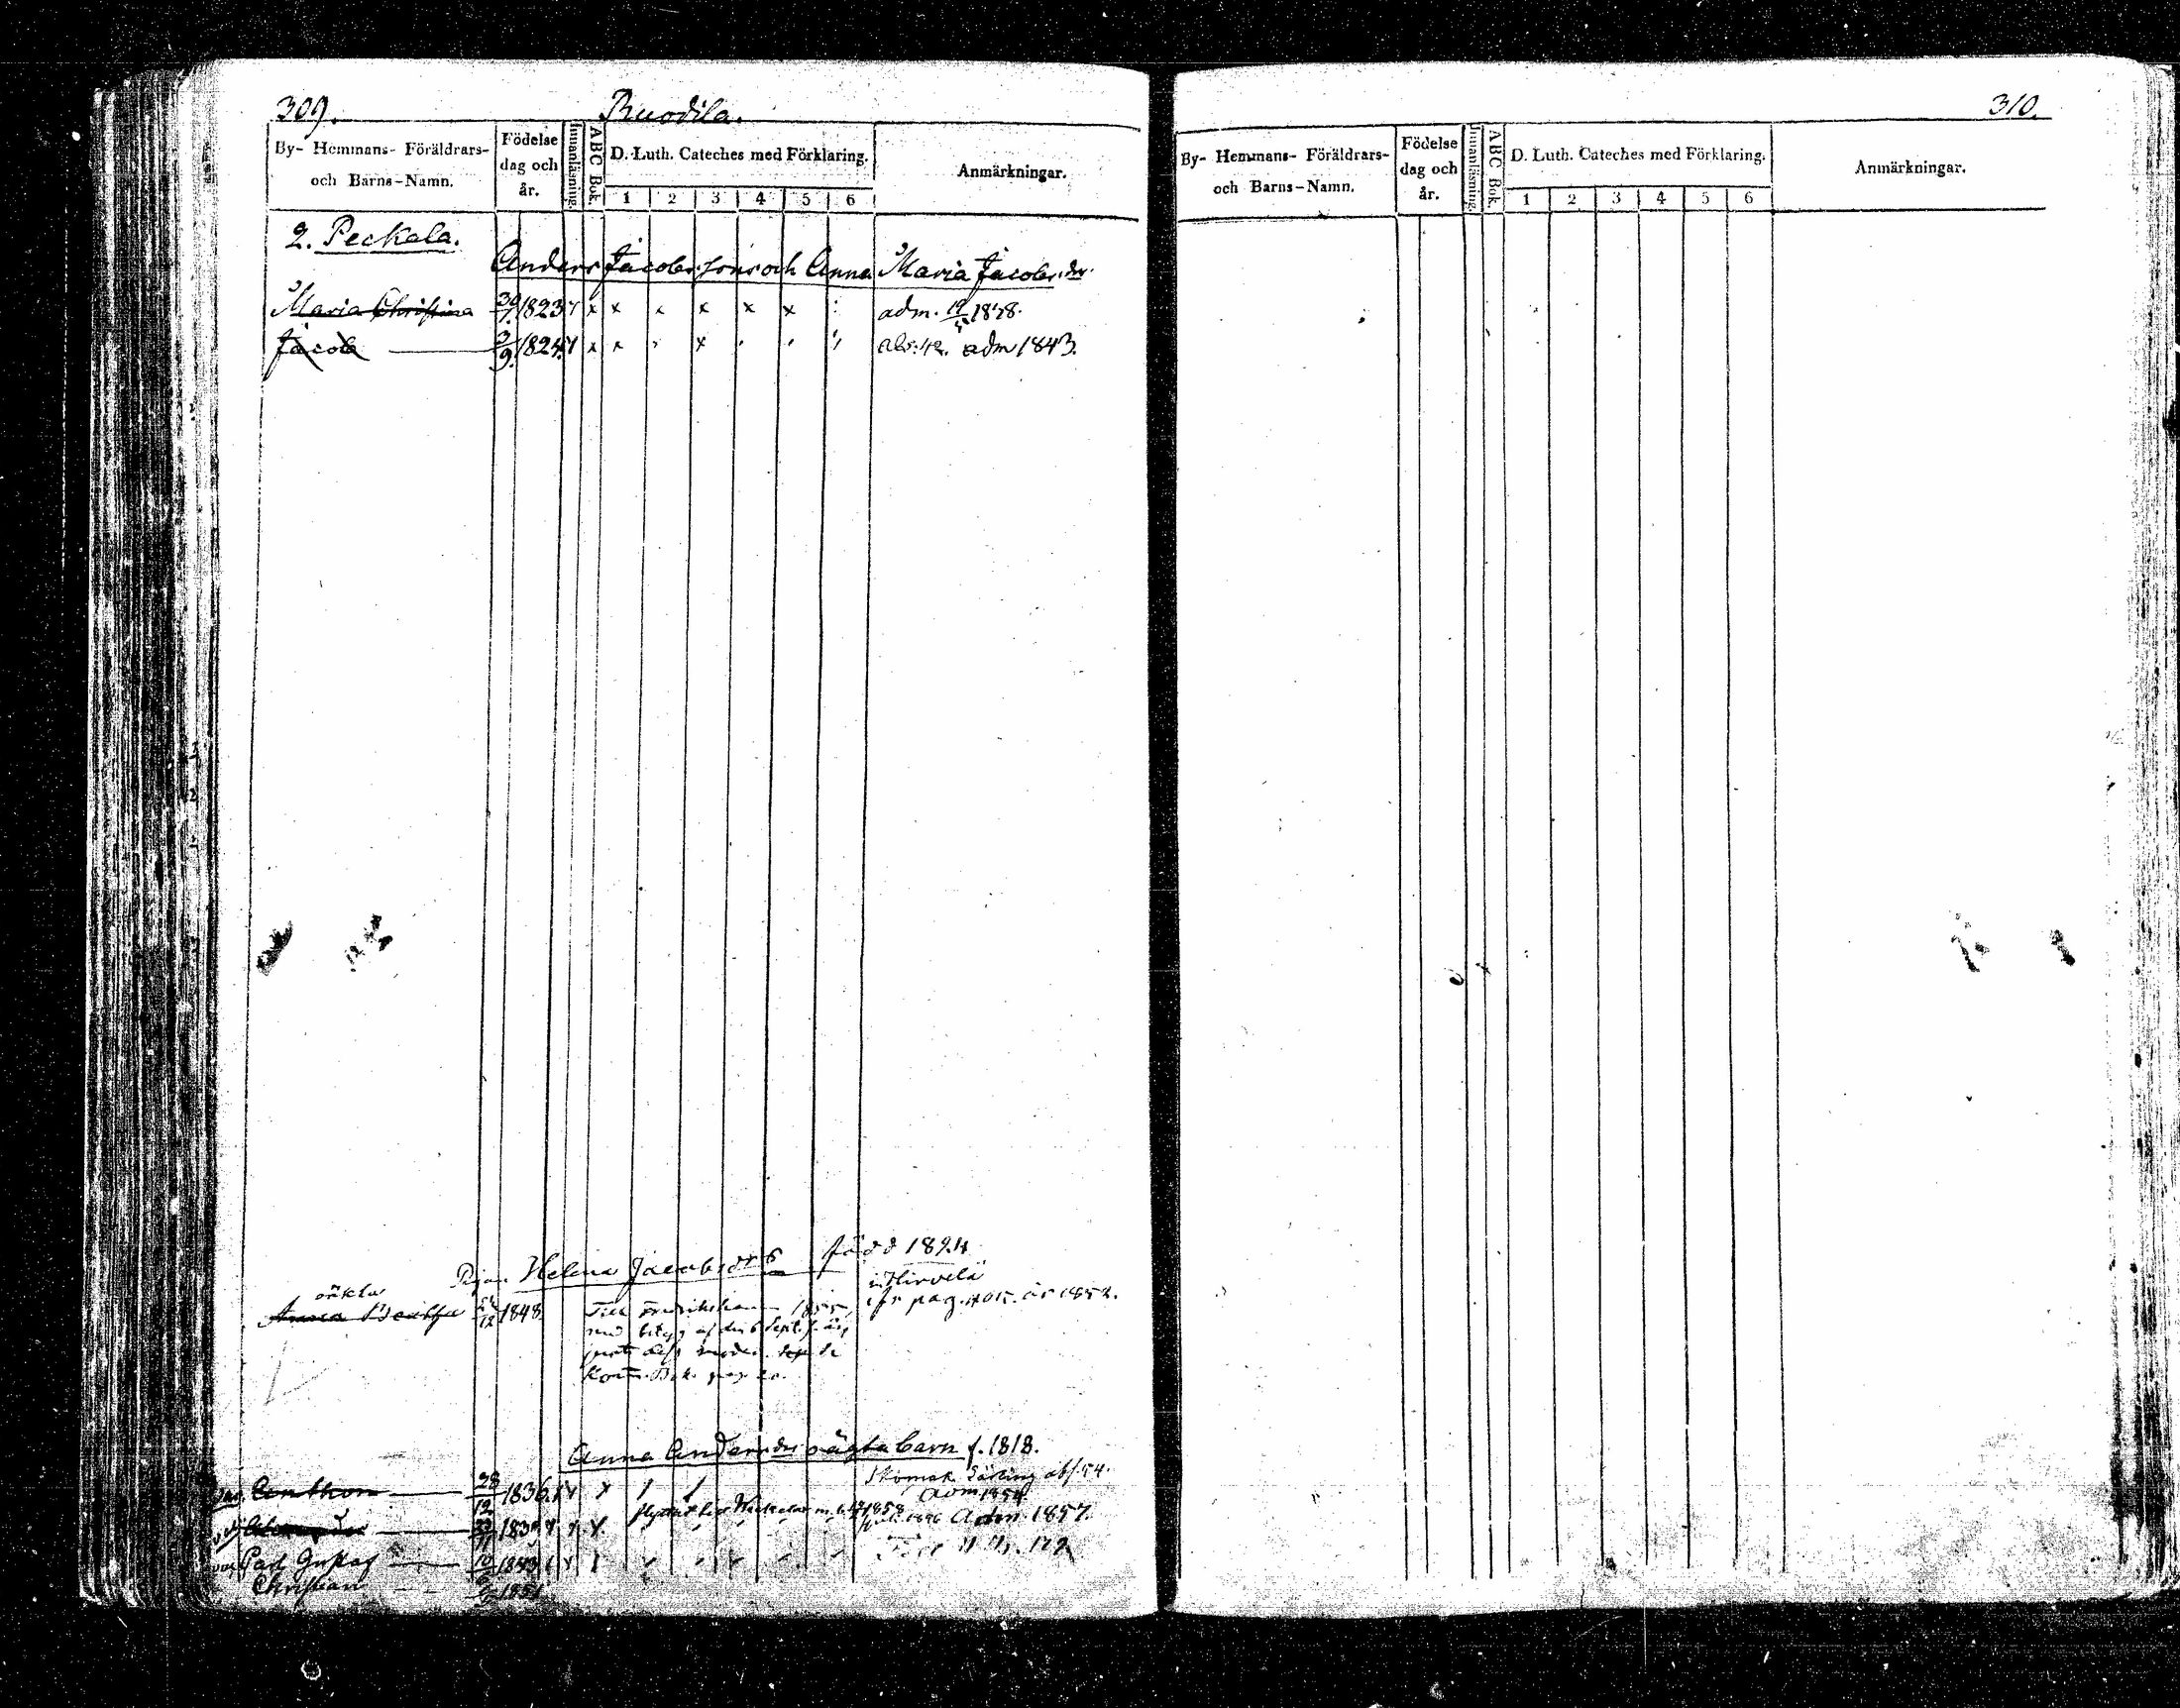 309.
Ruotila.
By- Hemmans- Föräldrars- och Barns-Namn.
Födelse dag och år.
Innanläsning.
ABC Bok.
D. Luth. Cateches med Förklaring.
1 2 3 4 5 6
Anmärkningar.
2. Peckala.
Anders Jacobsson och Anna Maria Jacobsdr.
Maria Christina 30/7 1823 x x x x x adm. 1838.
Jacob 3/9 1824 x x x abs. 42. adm 1843.
Pig. Helena Jacobsdr född 1824
i Hirvelä
oäkta
Anna 12 1848 Till Fredrikshamn 1855 pag. 1852.
med betyg af den 6 Sept. s. år,
moder
Kom. Bok pag.
Anna Andersdr oägta barn f. 1818.
Anthon 28/12 1836 x x Skomak. abs. 54.
adm 1854.
Alexander 1839 Flyttat till 1858 Adm 1857.
Carl Gustaf 10 1843
Christian 1851
310.
By- Hemmans- Föräldrars- och Barns-Namn.
Födelse dag och år.
Innanläsning.
ABC Bok.
D. Luth. Cateches med Förklaring.
1 2 3 4 5 6
Anmärkningar.